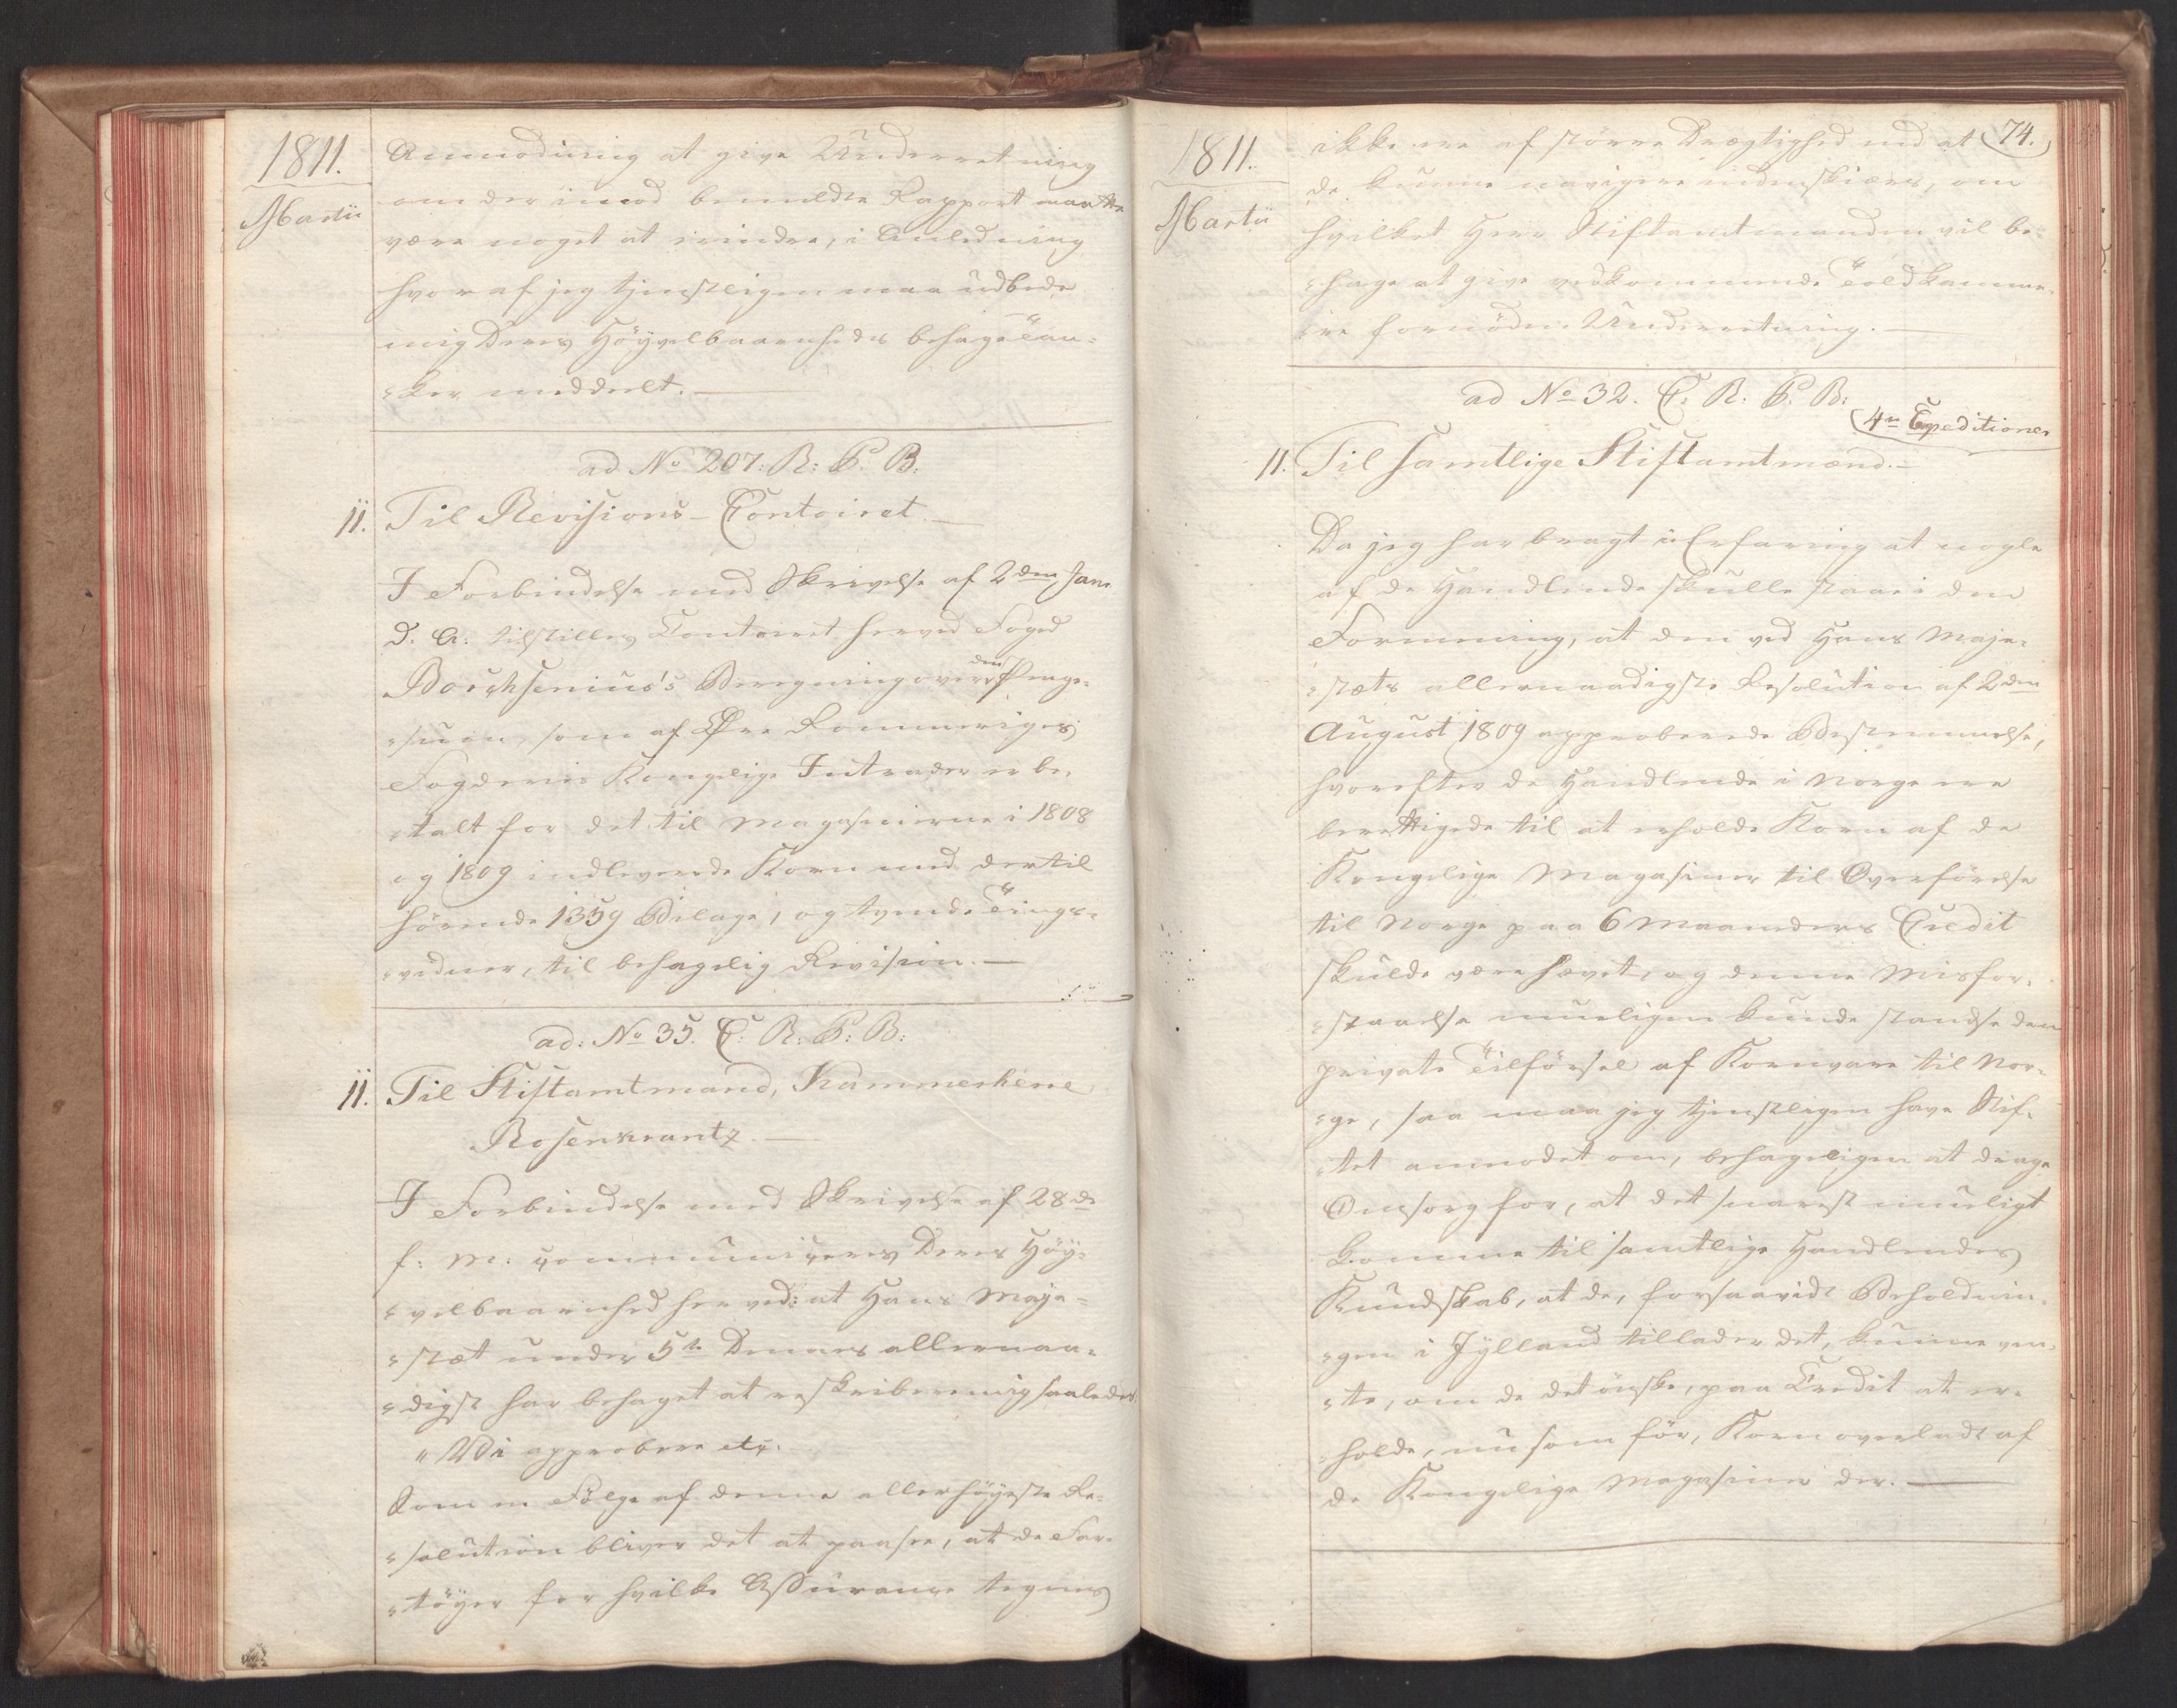 1811.
Martii
Anmodning at give Underretning
om der imod bemeldte Rapport maatte
være noget at erindre, i Anledning
hvoraf jeg tjenstligen maa udbede
mig Deres Höyvelbaarenheds behage Tan-
-ker meddeelt. —
ad No 207: R: P. B:
11. Til Revisions-Contoiret. —
I Forbindelse med Skrivelse af 2den Janr
D. A: tilstilles Contoiret herved Foged
Borchsenius's Beregning over den Penge-
-sum, som af Øvre Rommeriges
Fogderies Kongelige Intrader er be-
-talt for det til Magasinerne i 1808
og 1809 indleverede Korn med dertil
hörende 1359 Bilage, og tvende Tings-
-vidner, til behagelig Revision. —
ad: No 35. C: R: P: B:
11. Til Stiftamtmand, Kammerherre
Rosenkrantz. —
I Forbindelse med Skrivelse af 28de
f: M: communiceres Deres Höy-
-velbaarenhed herved: at Hans Maje-
-stæt under 5te Dennes allernaa-
-digst har behaget at reskribere mig saaledes:
"Vi approbere etc.
Som en Fölge af denne allerhöyeste Re-
-solution bliver det at paasee, at de Far-
-töyer for hvilke Assurance tegnes
1811.
Martii
74.
ikke ere af större Drægtighed end at
de kunne navigere indenskiærs, om
hvilket Herr Stiftamtmanden vil be-
-hage at give vedkommende Toldkamme-
-re fornöden Underretning. —
ad No 32. C. R: P. B:
4re Expeditioner
11. Til samtlige Stiftamtmænd. —
Da jeg har bragt i Erfaring at nogle
af de Handlende skulle staae i den
Formening, at den ved Hans Maje-
-stæts allernaadigste Resolution af 2den
August 1809 approberede Bestemmelse,
hvorefter de Handlende i Norge ere
berettigede til at erholde Korn af de
Kongelige Magasiner til Overförelse
til Norge paa 6 Maaneders Credit
skulde være hævet, og denne Misfor-
-staaelse mueligen kunde standse den
private Tilförsel af Kornvare til Nor-
-ge, saa maa jeg tjenstligen have Stif-
-tet anmodet om, behageligen at drage
Omsorg for, at det snarest mueligt
komme til samtlige Handlendes
Kundskab, at de, forsaavidt Beholdnin-
-gen i Jylland tillader det, kunne ven-
-te, om de det önske, paa Credit at er-
-holde, nu som för, Korn overladt af
de Kongelige Magasiner der. —